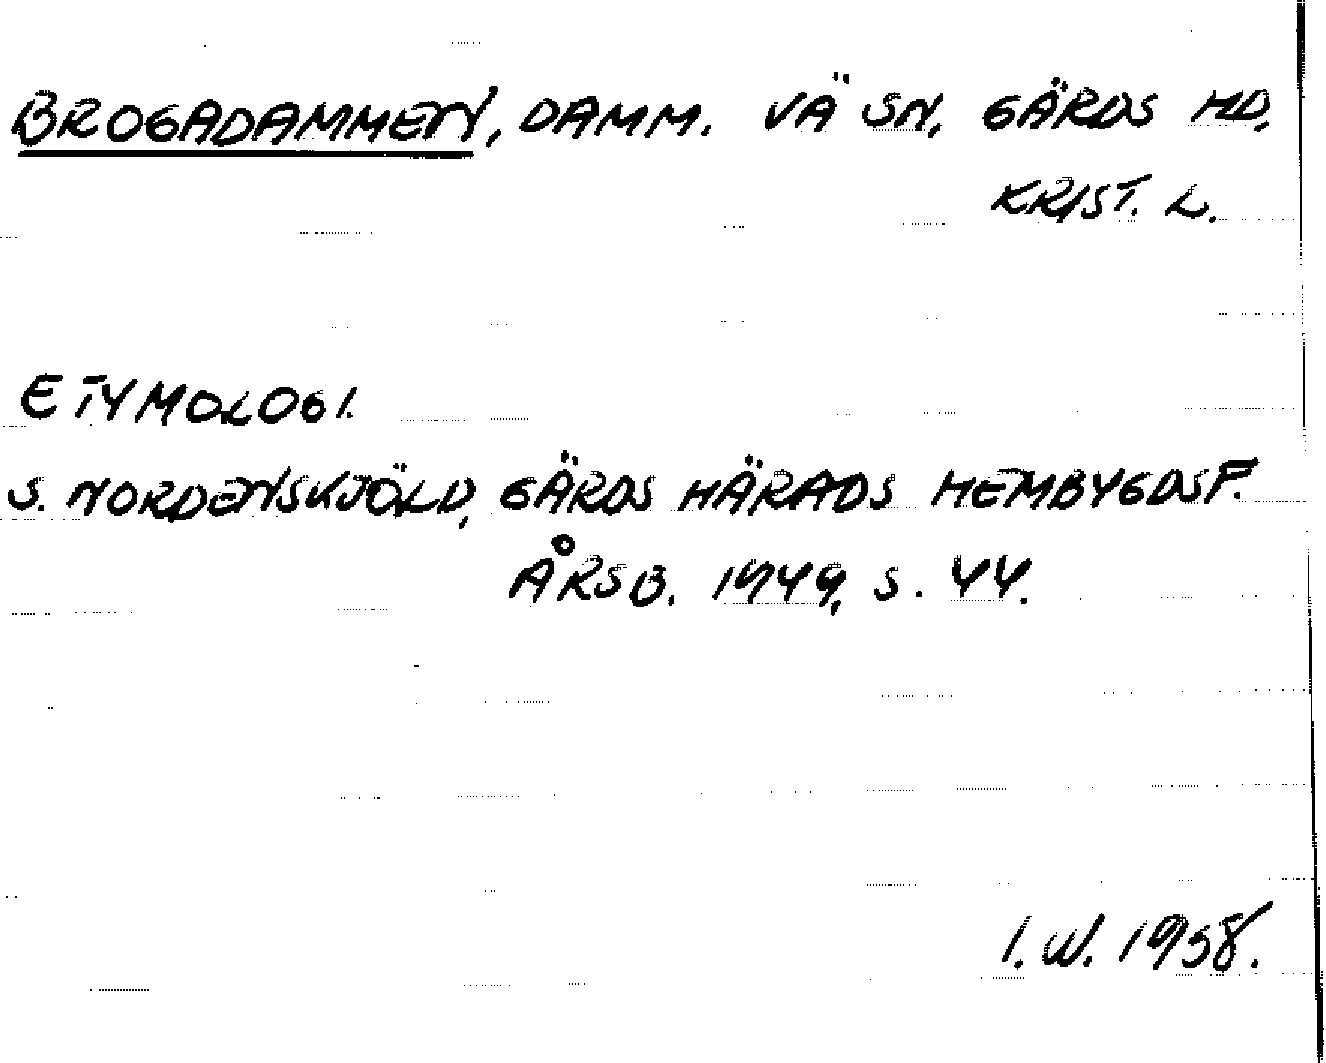 BROGADAMMEN, DAMM. VÄ SN, GÄRDS HD,
KRIST. L.
ETYMOLOGI.
S. NORDENSKJÖLD, GÄRDS HÄRADS HEMBYGDSF.
ÅRSB. 1949, S. 44.
I. W. 1958.